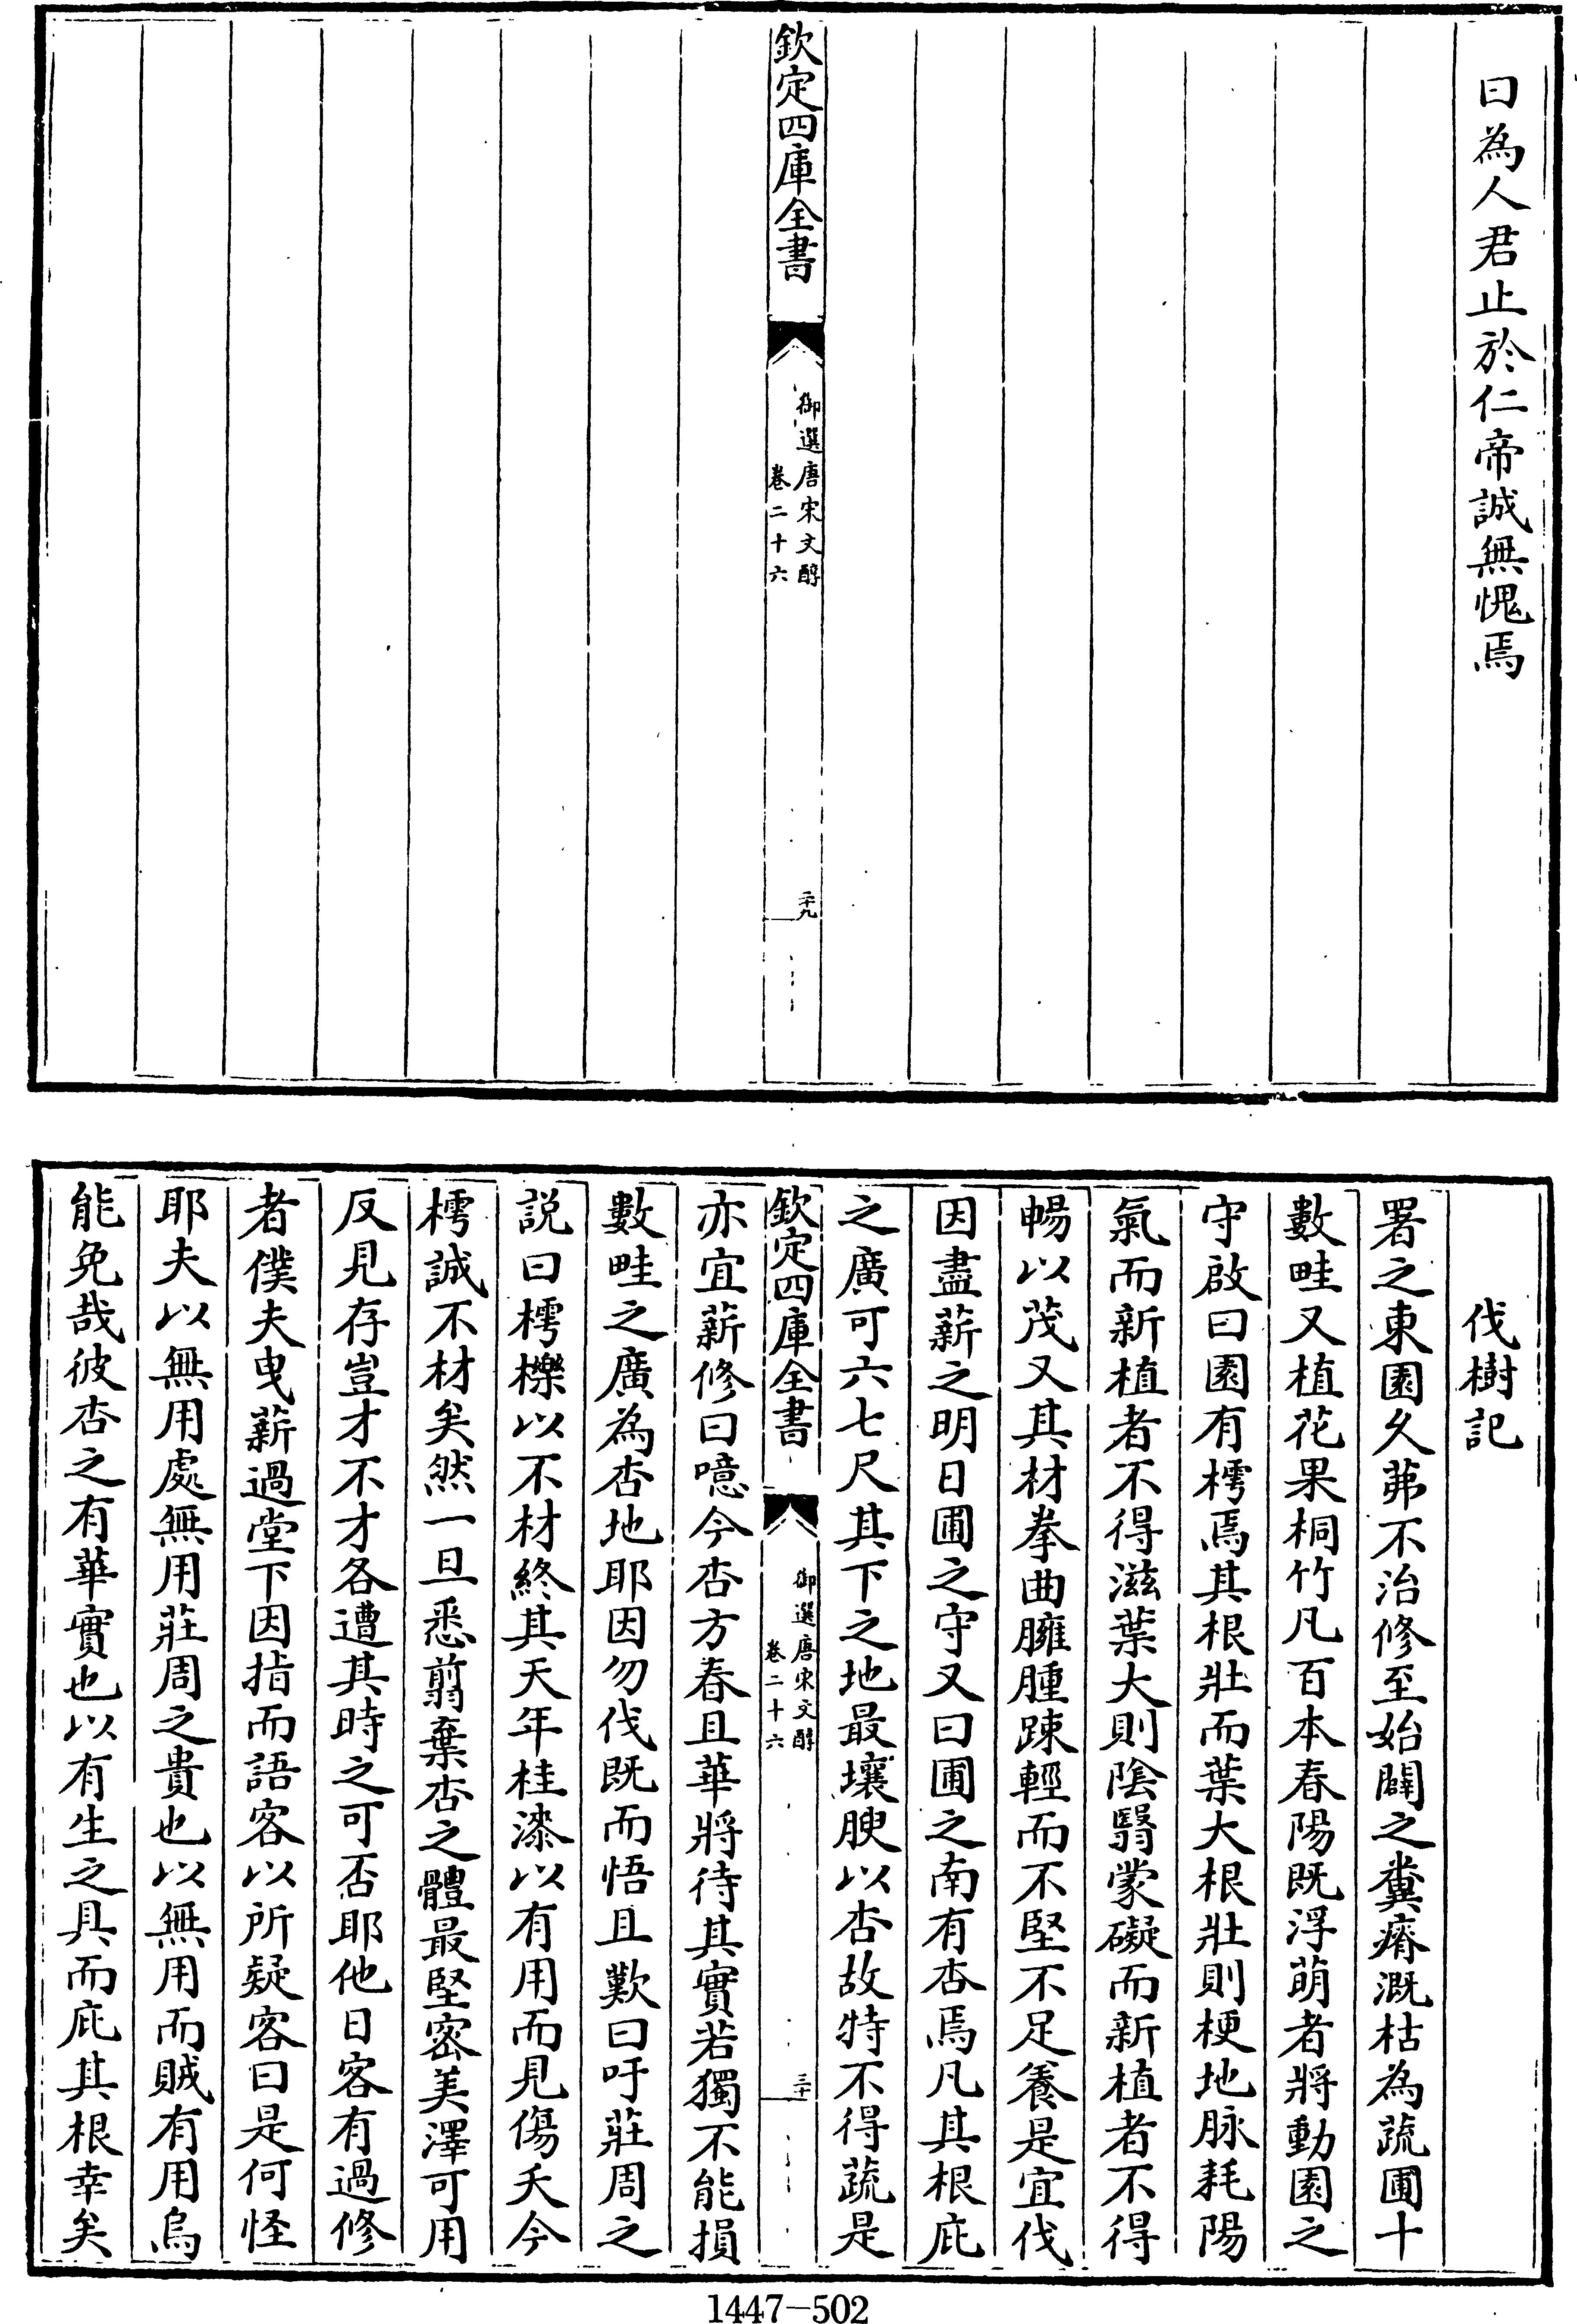 曰為人君止於仁帝誠無愧焉
欽定四庫全書
御選唐宋文醇
卷二十六
二十九
伐樹記
署之東園久茀不治修至始闢之糞瘠溉枯為蔬圃十
數畦又植花果桐竹凡百本春陽既浮萌者將動園之
守啟曰園有樗焉其根壯而葉大根壯則梗地脉耗陽
氣而新植者不得滋葉大則陰翳蒙礙而新植者不得
暢以茂又其材拳曲臃腫踈輕而不堅不足養是宜伐
因盡薪之明日圃之守又曰圃之南有杏焉凡其根庇
之廣可六七尺其下之地最壤腴以杏故特不得蔬是
欽定四庫全書
御選唐宋文醇
卷二十六
三十
亦宜薪修曰噫今杏方春且華將待其實若獨不能損
數畦之廣為杏地耶因勿伐既而悟且歎曰吁莊周之
説曰樗櫟以不材終其天年桂漆以有用而見傷夭今
樗誠不材矣然一旦悉翦棄杏之體最堅密美澤可用
反見存豈才不才各遭其時之可否耶他日客有過修
者僕夫曳薪過堂下因指而語客以所疑客曰是何怪
耶夫以無用處無用莊周之貴也以無用而賊有用烏
能免哉彼杏之有華實也以有生之具而庇其根幸矣
1447-502